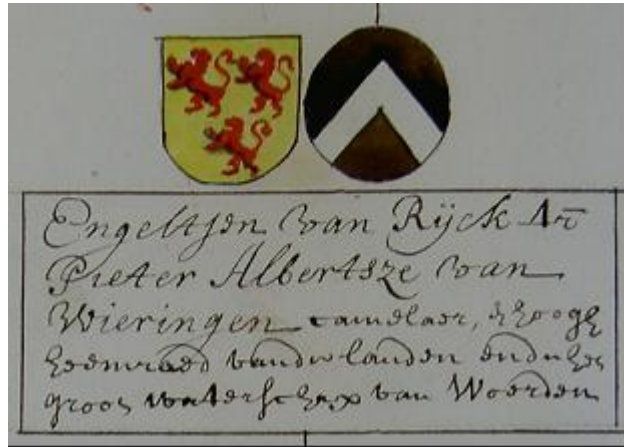 Engeltjen van Rÿck tr̄
Pieter Albertsze van
Wieringen camelaer, & hoogh
heemraed vande landen ende het
groot waterschap van Woerden